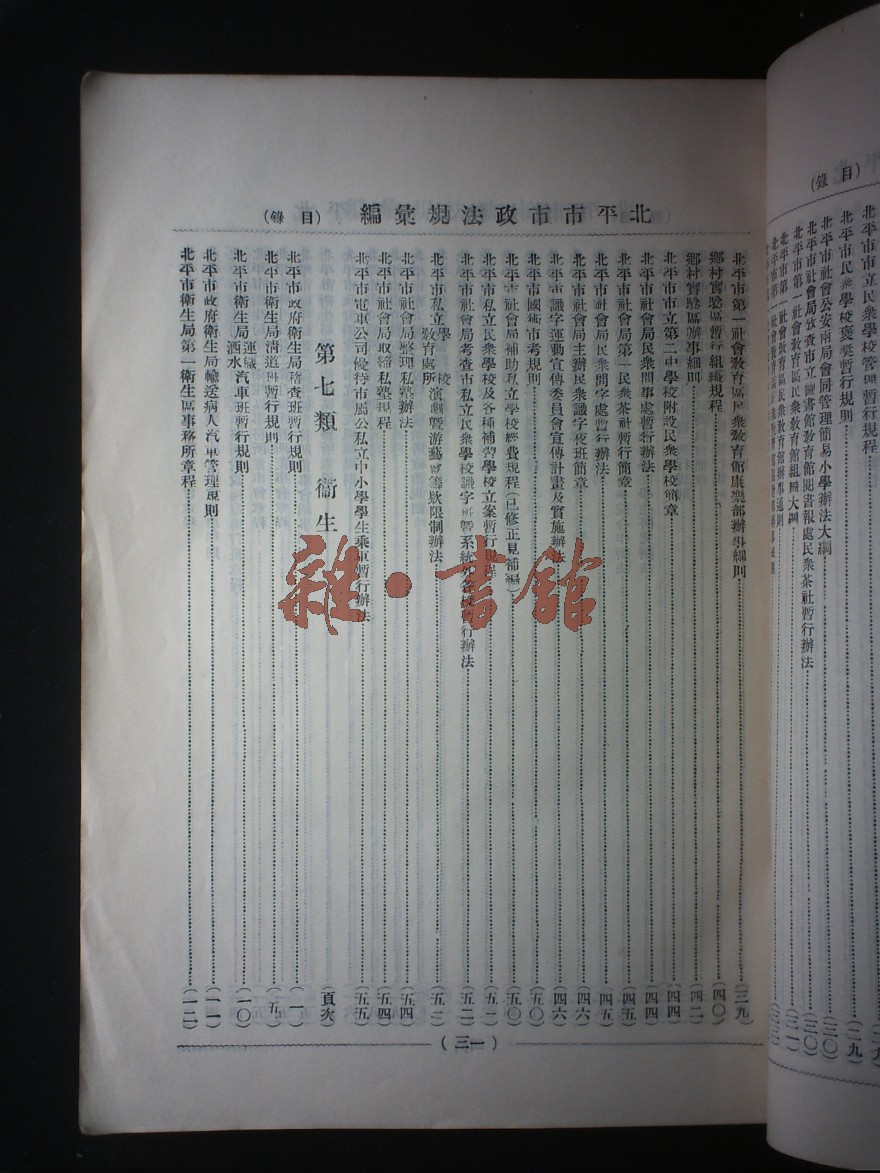 (錄 目)
北平市市立民衆學校管理暫行規程
北平市民衆學校褒獎暫行規則
北平市社會公安兩局會同管理簡易小學辦法大綱
(三〇)
(二九)
北平市市政法規彙編 (目 錄)
北平市第一社會教育區民衆教育館康樂部辦事細則 (三九)
鄉村實驗區暫行組織規程 (四〇)
鄉村實驗區辦事細則
北平市市立第二中學校附設民衆學校簡章 (四四)
北平市社會局民衆問事處暫行辦法 (四四)
北平市社會局第一民衆茶社暫行簡章 (四五)
北平市社會局民衆問字處暫行辦法 (四五)
北平市社會局主辦民衆識字夜班簡章 (四六)
北平市識字運動宣傳委員會宣傳計畫及實施辦法 (四六)
北平市國術市考規則 (五〇)
北平市社會局補助私立學校經費規程(已修正見補編) (五〇)
北平市私立民衆學校及各種補習學校立案暫行規程
北平市社會局考查市私立民衆學校識字班暨系統外各校暫行辦法 (五二)
北平市私立學校教育處所演劇暨游藝會籌欵限制辦法
北平市社會局整理私塾辦法 (五四)
北平市社會局取締私塾規程 (五四)
北平市電車公司優待市屬公私立中小學學生乘車暫行辦法 (五五)
第七類 衞生 (頁次)
北平市政府衛生局稽查班暫行規則 (一)
北平市衛生局清道班暫行規則 (五)
北平市衛生局運穢洒水汽車班暫行規則 (一〇)
北平市政府衛生局輸送病人汽車管理規則 (一一)
北平市衛生局第一衛生區事務所章程 (一二)
(三一)
雜·書館